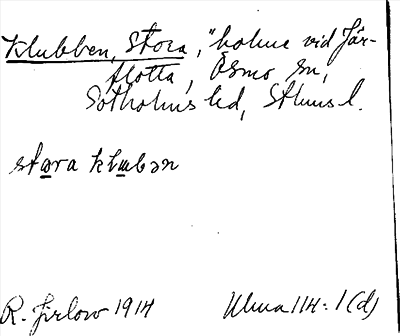 Klubben, Stora, "holme vid Jär-
flotta, Ösmo sn,
Sotholms hd, Sthms l.
stora klubən
R. Jirlow 1914
Ulma 114:1 (d)